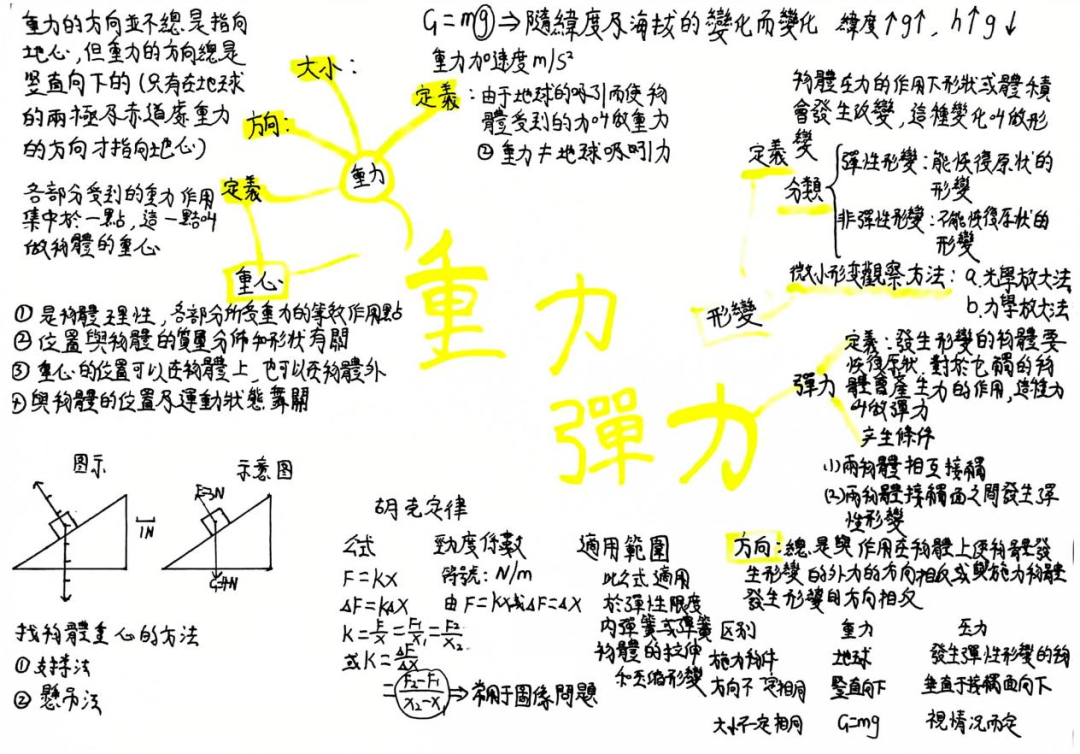 重力的方向並不總是指向
地心,但重力的方向總是
豎直向下的(只有在地球
的兩極及赤道處重力
的方向才指向地心)
大小:
G=mg⇒隨緯度及海拔的變化而變化 緯度↑g↑, h↑g↓
重力加速度m/s²
方向:
定義:由于地球的吸引而使物
體受到的力叫做重力
② 重力≠地球吸引力
重力
各部分受到的重力作用
集中於一點,這一點叫
做物體的重心
定義
重心
① 是物體理性,各部分所受重力的等效作用點
② 位置與物體的質量分佈和形狀有關
③ 重心的位置可以在物體上,也可以在物體外
④與物體的位置及運動狀態無關
重力
彈力
物體在力的作用下形狀或體積
會發生改變,這種變化叫做形
變
定義
分類
彈性形變:能恢復原狀的
形變
非彈性形變:不能恢復原狀的
形變
微小形变觀察方法:a.光學放大法
b.力學放大法
形變
彈力
定義:發生形變的物體要
恢復原狀,對於它觸的物
體會產生力的作用,這種力
叫做彈力
产生條件
(1)兩物體相互接觸
(2)兩物體接觸面之間發生彈
性形變
方向:總是與作用在物體上使物體發
生形變的外力的方向相反或與施力物體
發生形變的方向相反
图示
1N
示意图
F=3N
G=4N
找物體重心的方法
① 支持法
② 懸吊法
胡克定律
公式
F=kx
ΔF=kΔx
K=F/x=F₁/x₁=F₂/x₂
或K=ΔF/Δx
=(F₂-F₁)/(x₂-x₁)⇒常用于圖像問題
勁度係數
符號:N/m
由F=kx或ΔF=Δx
適用範圍
此公式適用
於彈性限度
内彈簧或彈簧
物體的拉伸
和压縮形變
区别 重力 压力
施力物件 地球 發生彈性形變的物
方向不一定相同 豎直向下 垂直于接觸面向下
大小不一定相同 G=mg 視情况而定